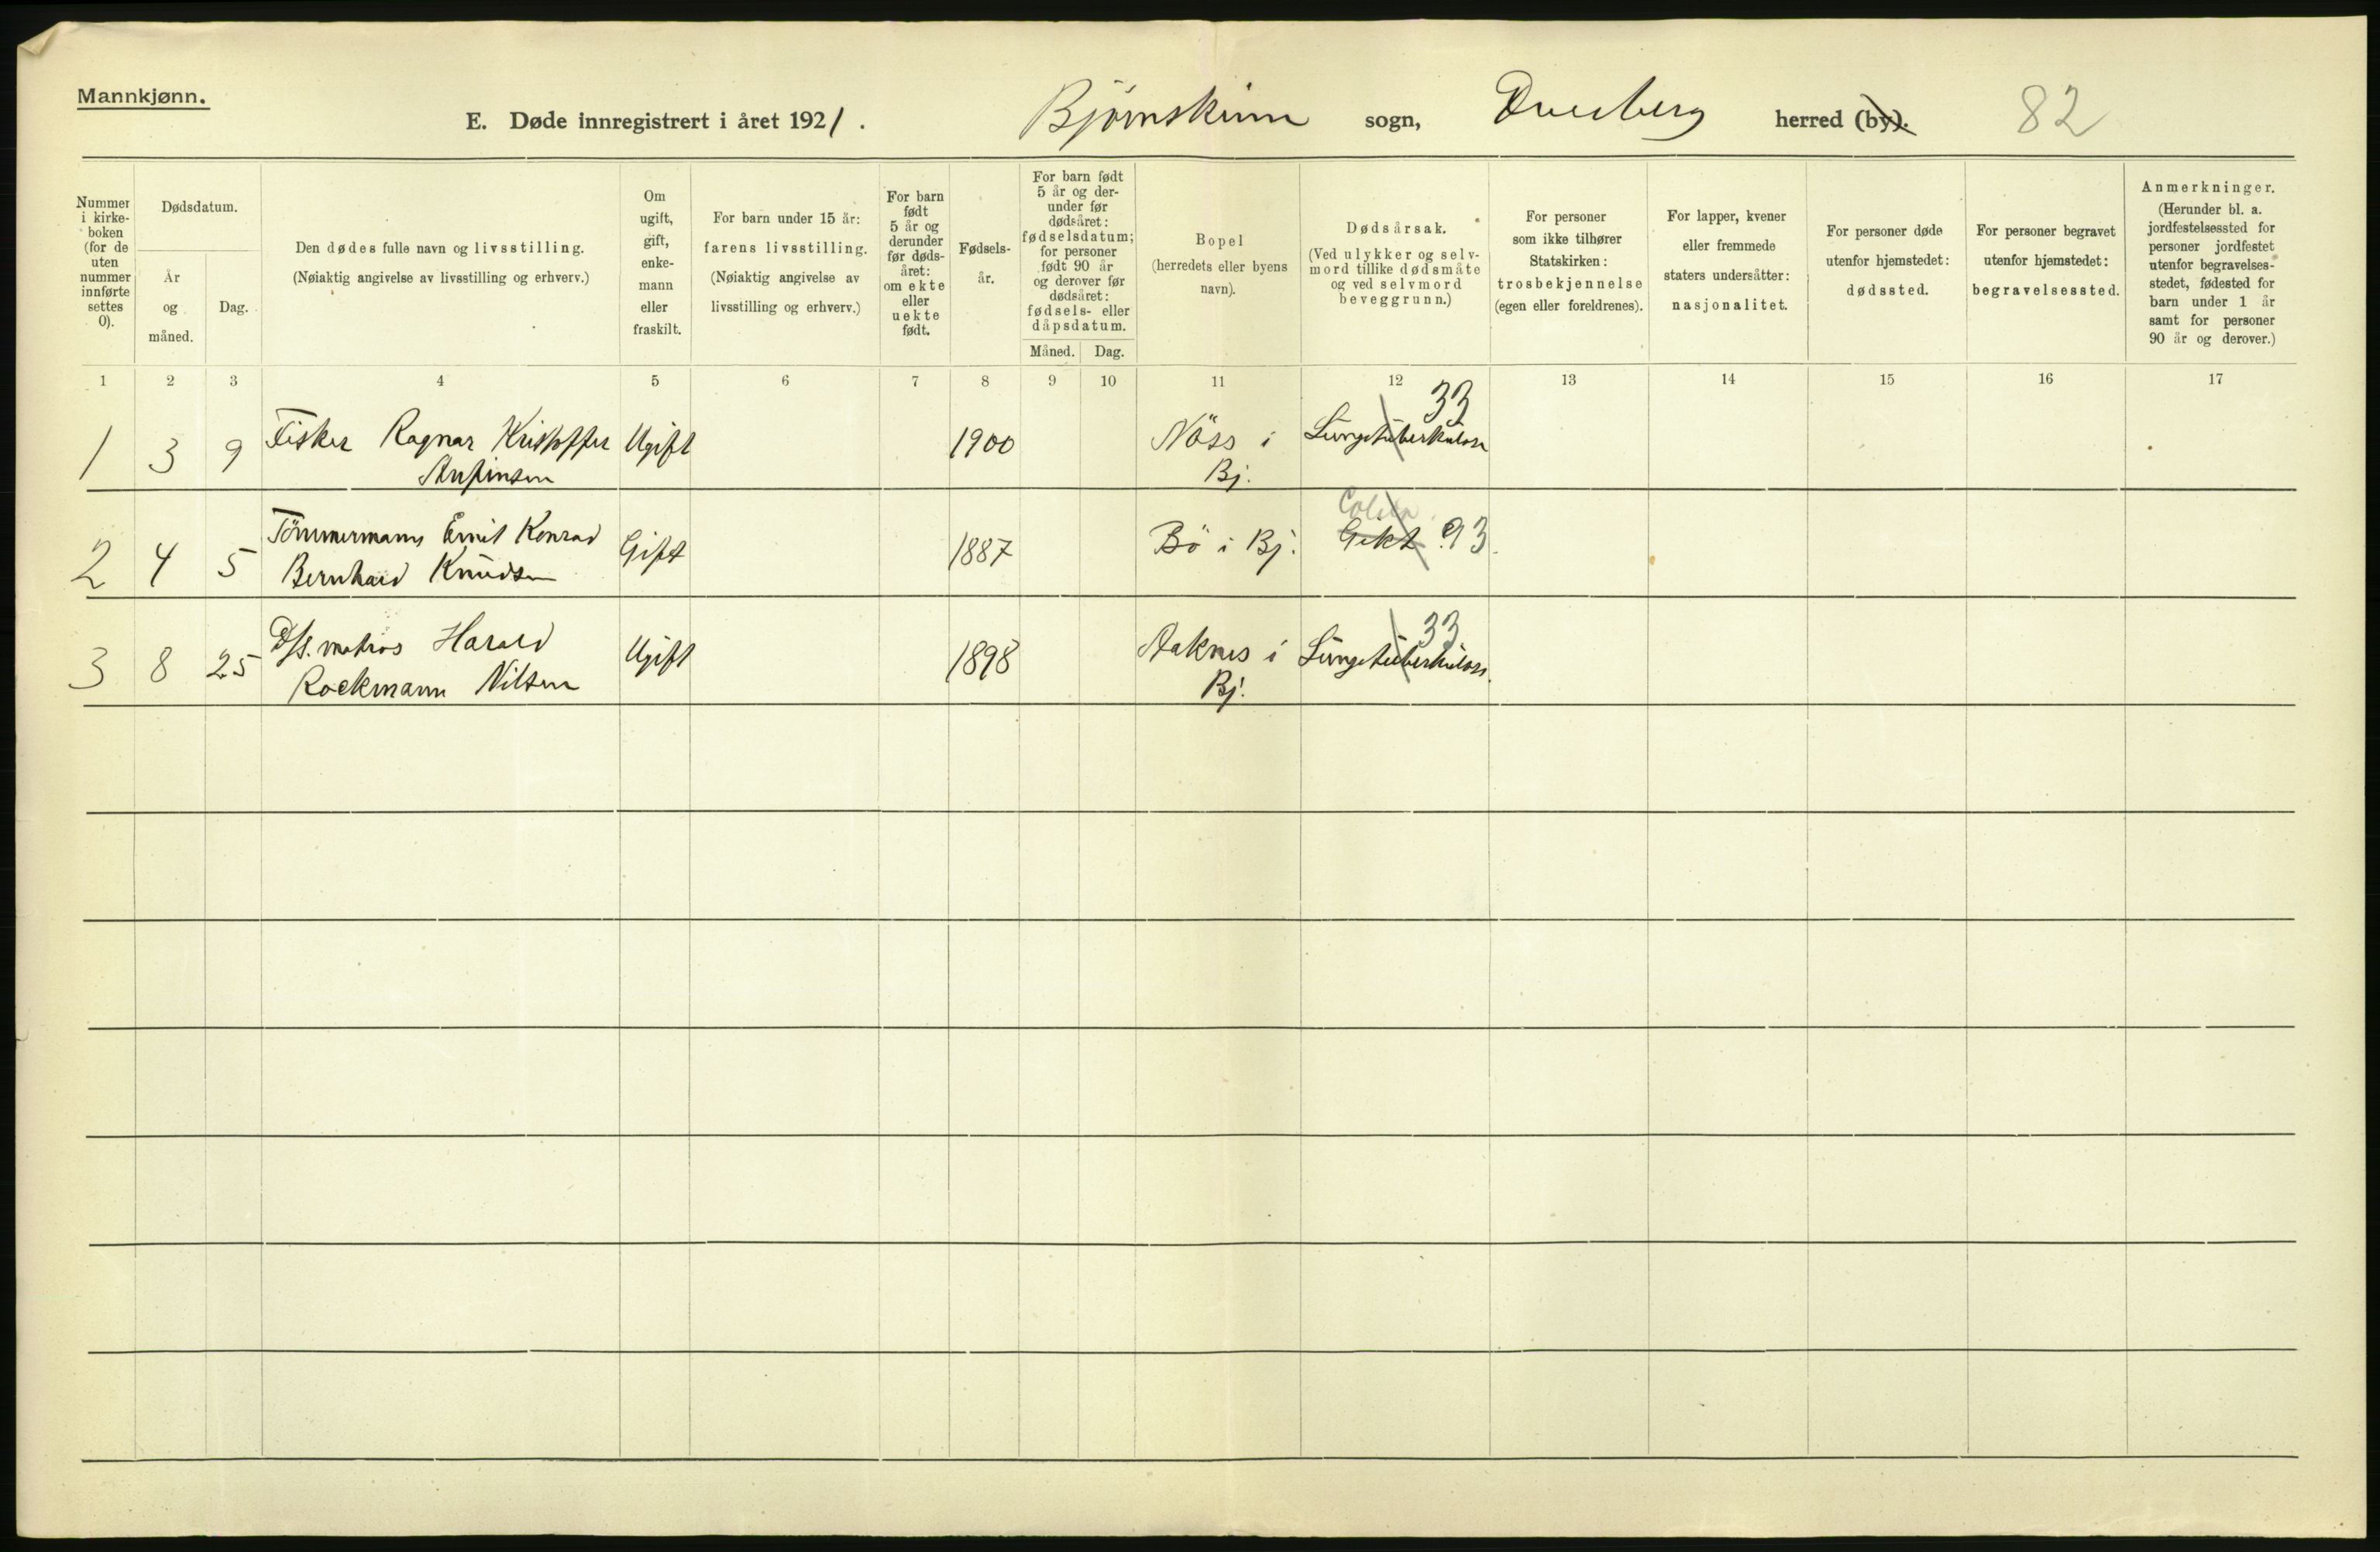 Mannkjønn.
E. Døde innregistrert i året 1921. Bjørnskinn sogn, Dverberg herred (by). 82
Nummer i kirke-boken (for de uten nummer innførte settes 0).
Dødsdatum.
År og måned.
Dag.
Den dødes fulle navn og livsstilling.
(Nøiaktig angivelse av livsstilling og erhverv.)
Om ugift, gift, enke-mann eller fraskilt.
For barn under 15 år:
farens livsstilling.
(Nøiaktig angivelse av livsstilling og erhverv.)
For barn født 5 år og derunder før døds-året: om ekte eller uekte født.
Fødsels-år.
For barn født 5 år og der-under før dødsåret: fødselsdatum; for personer født 90 år og derover før dødsåret: fødsels- eller dåpsdatum.
Måned. Dag.
Bopel
(herredets eller byens navn).
Dødsårsak.
(Ved ulykker og selv-mord tillike dødsmåte og ved selvmord beveggrunn.)
For personer som ikke tilhører Statskirken: trosbekjennelse (egen eller foreldrenes).
For lapper, kvener eller fremmede staters undersåtter: nasjonalitet.
For personer døde utenfor hjemstedet: dødssted.
For personer begravet utenfor hjemstedet: begravelsessted.
Anmerkninger.
(Herunder bl. a. jordfestelsessted for personer jordfestet utenfor begravelses-stedet, fødested for barn under 1 år samt for personer 90 år og derover.)
1 2 3 4 5 6 7 8 9 10 11 12 13 14 15 16 17
33
1 3 9 Fisker Ragnar Kristoffer Ugift 1900 Nöss i Lungetuberkulose
Bj.
2 4 5 Tömmermann Emil Konrad Gift 1887 Bö i Bj. Gikt 93.
Bernhard Knudsen
33
3 8 25 D/s. matros Harald Ugift 1898 Aaknes i Lungetuberkulose.
Rockmann Nilsen Bj.